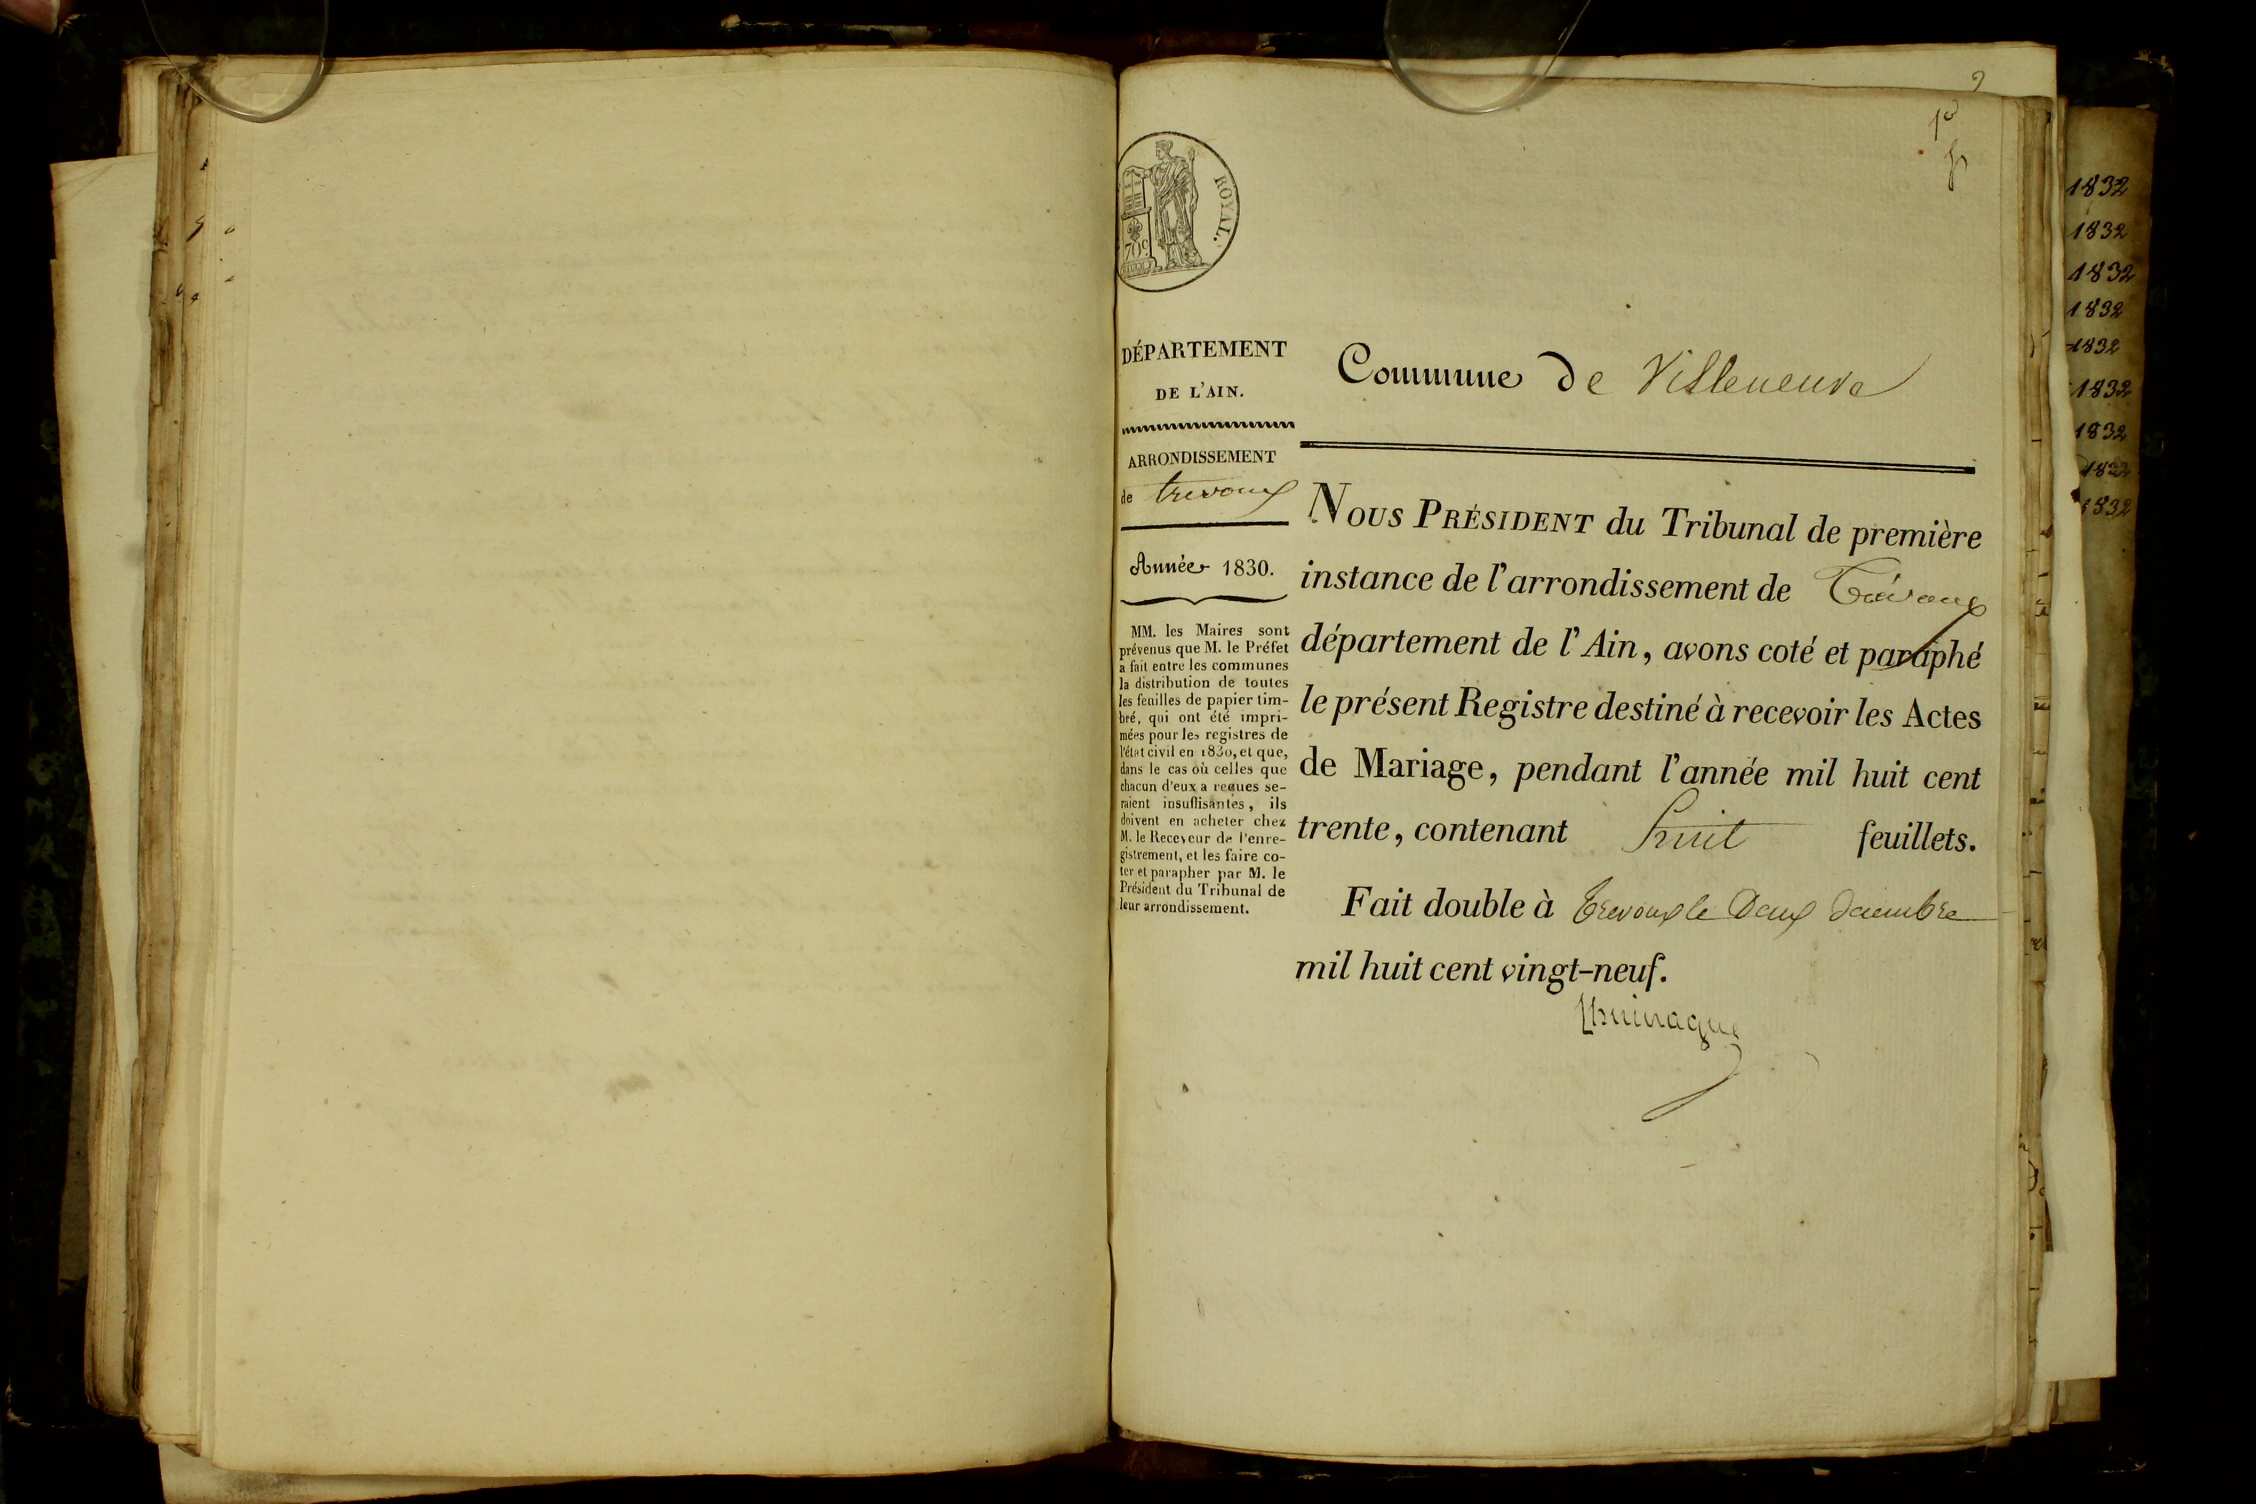 ROYAL.
70c
DÉPARTEMENT
DE L'AIN.
ARRONDISSEMENT
de trevoux
Année 1830.
MM. les Maires sont
prévenus que M. le Préfet
a fait entre les communes
la distribution de toutes
les feuilles de papier tim-
bré, qui ont été impri-
mées pour les registres de
l'état civil en 1830, et que,
dans le cas où celles que
chacun d'eux a reçues se-
raient insuffisantes, ils
doivent en acheter chez
M. le Receveur de l'enre-
gistrement, et les faire co-
ter et parapher par M. le
Président du Tribunal de
leur arrondissement.
Commune de Villeneuve
NOUS PRÉSIDENT du Tribunal de première
instance de l'arrondissement de Trévoux
département de l'Ain, avons coté et paraphé
le présent Registre destiné à recevoir les Actes
de Mariage, pendant l'année mil huit cent
trente, contenant huit feuillets.
Fait double à Trevoux le Deux décembre
mil huit cent vingt-neuf.
1832
1832
1832
1832
1832
1832
1832
1832
1832